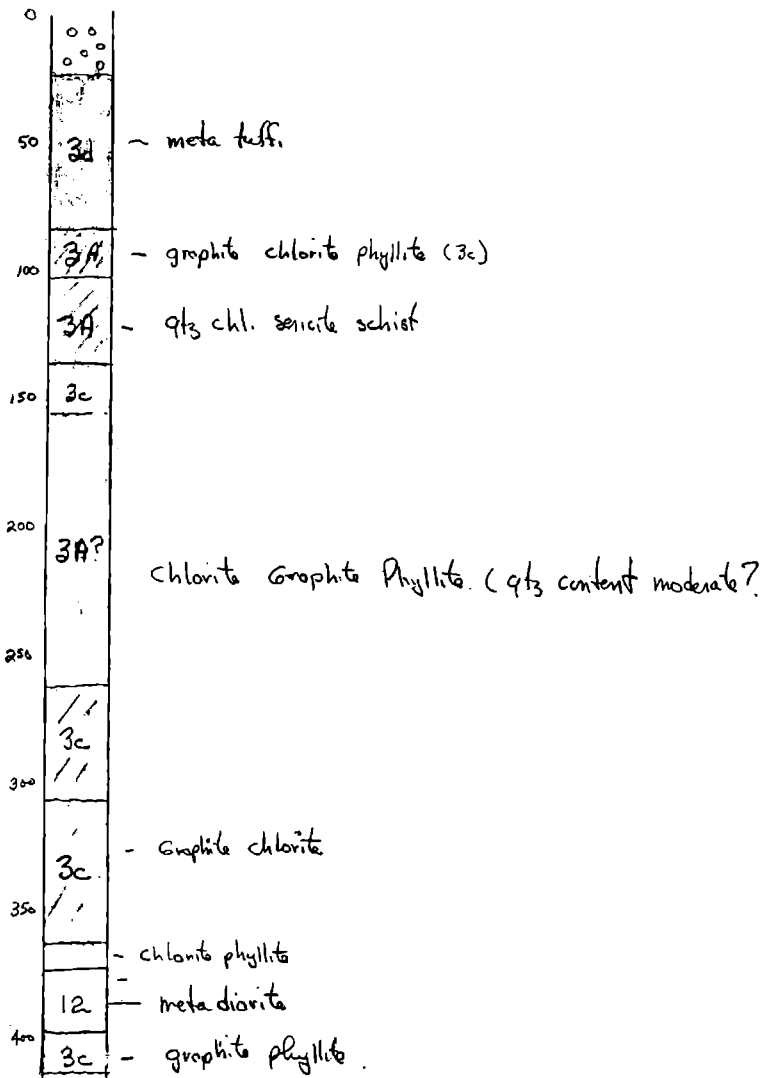 0
50 3d - meta tuff.
3A - graphite chlorite phyllite (3c)
100
3A - qtz chl. sericite schist
150 3c
200
3A? Chlorite Graphite Phyllite. (qtz content moderate?
250
3c
300
3c. - Graphite chlorite
350
- chlorite phyllite
12 - meta diorite
400
3c - graphite phyllite.